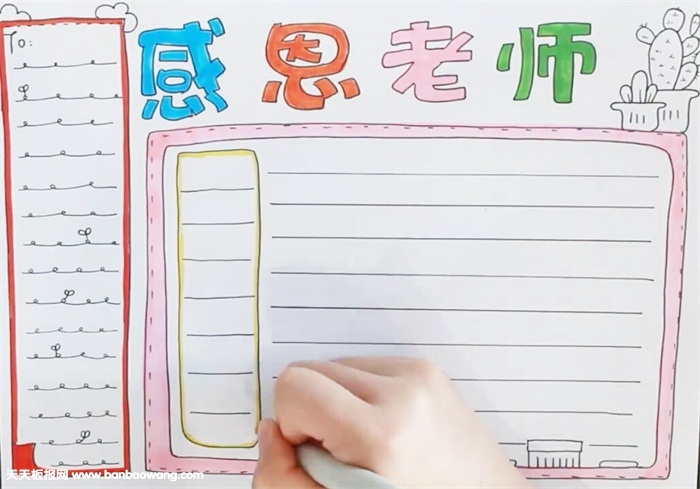 感恩老师
To:
天天板报网 www.banbaowang.com